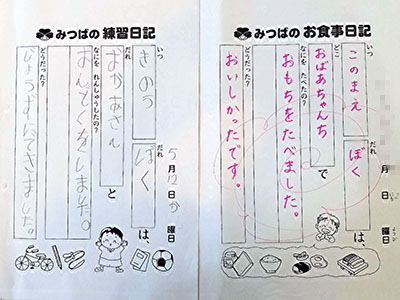 みつばの お食事日記
月 日 曜日
いつ
このまえ
だれ
ぼく は、
どこ
おばあちゃんち で
なにを たべたの?
おもちをたべました。
どうだった?
おいしかったです。
みつばの 練習日記
5月12日 か曜日
いつ
きのう
だれ
ぼく は、
だれ
おかあさん と
なにを れんしゅうしたの?
おんどくをしました。
どうだった?
じょうずにできました。